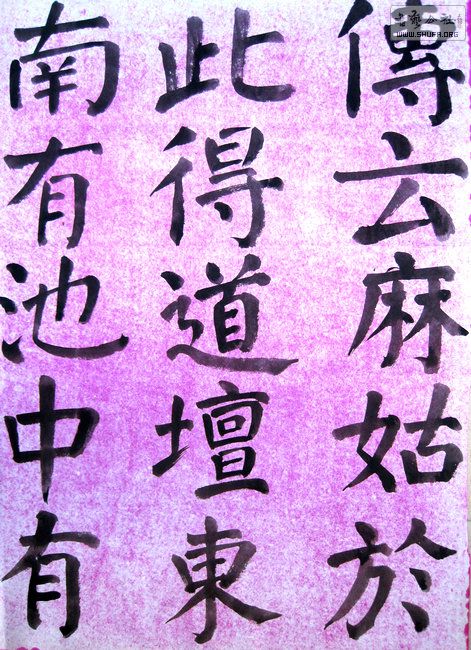 傳云麻姑於
此得道壇東
南有池中有
WWW.SHUFA.ORG